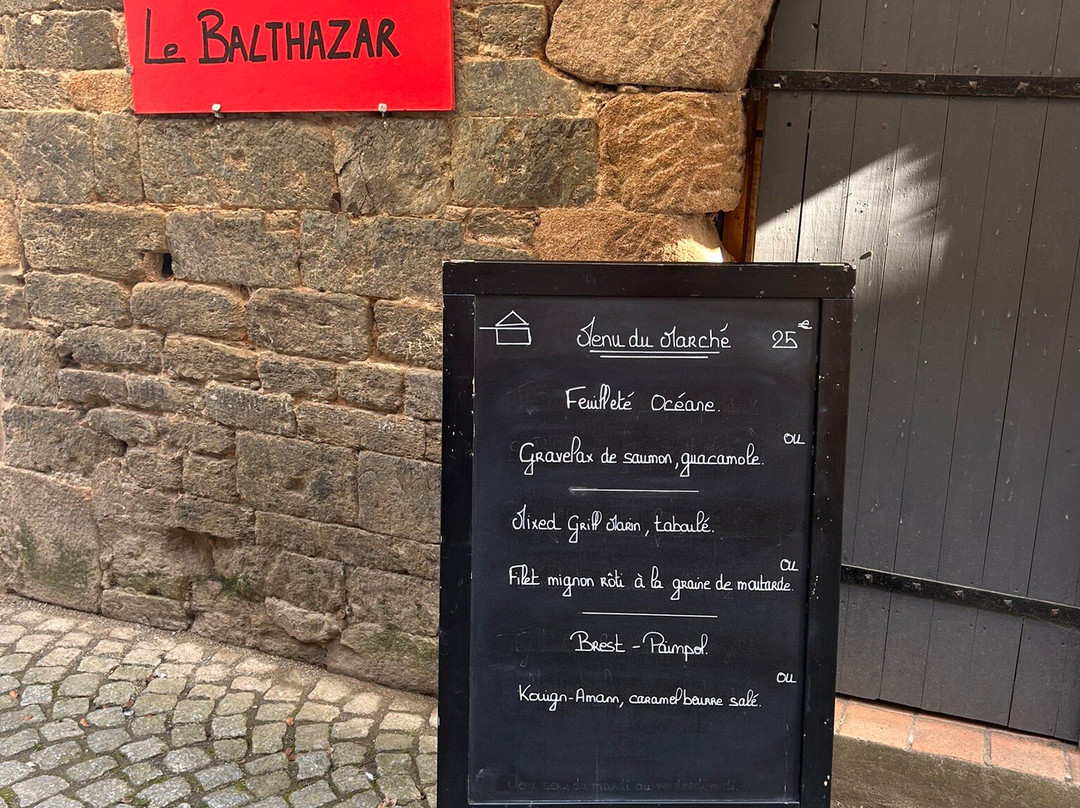 Le BALTHAZAR
Menu du Marché 25€
Feuilleté Océane.
ou
Gravelax de saumon, guacamole.
Mixed Grill Marin, taboulé.
ou
Filet mignon rôti à la graine de moutarde.
Brest - Paimpol.
ou
Kouign-Amann, caramel beurre salé.